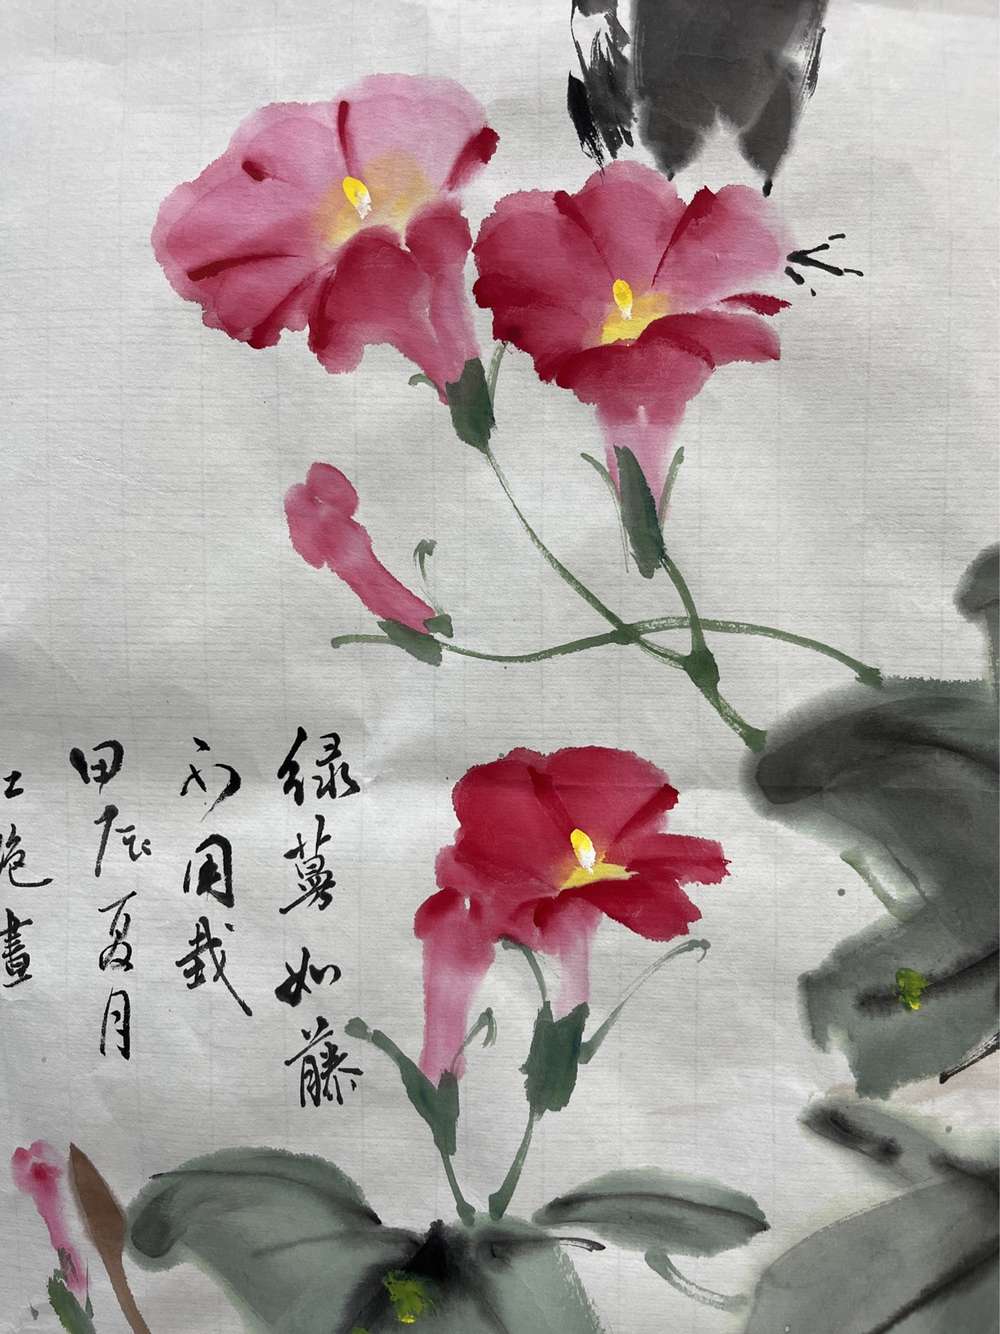 绿蔓如藤
不用栽
甲辰夏月
畫